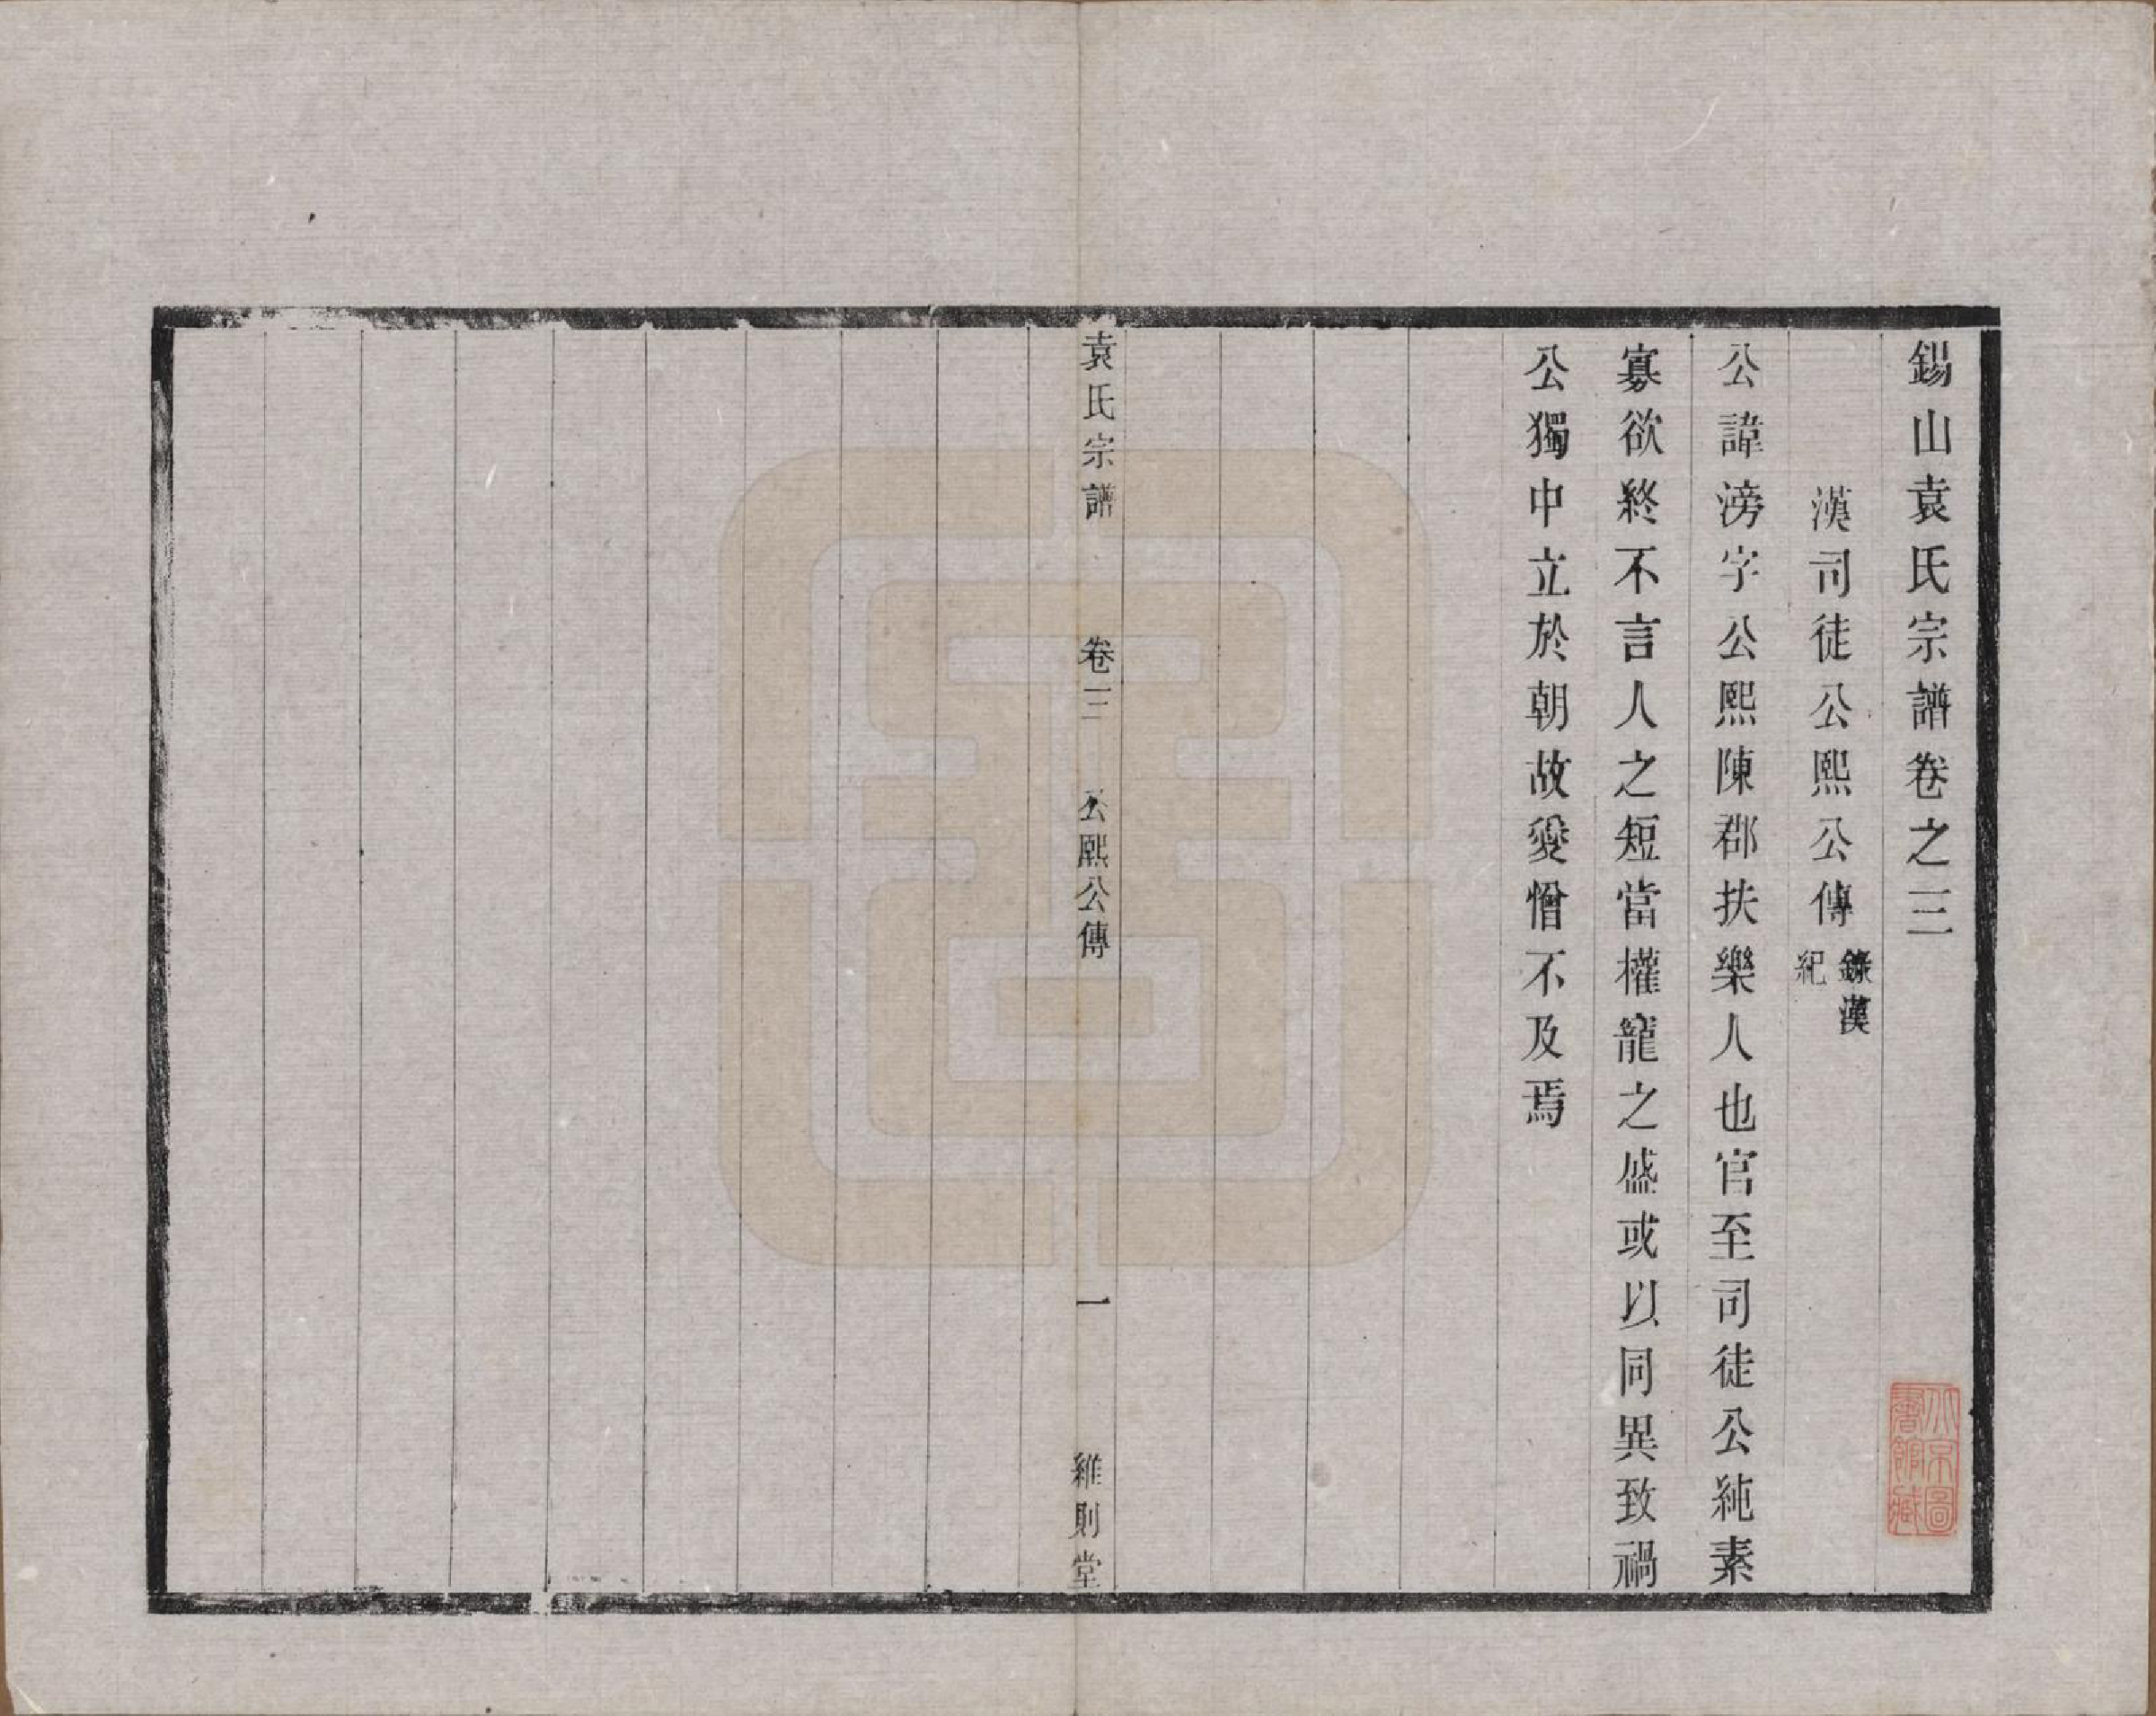 錫山袁氏宗譜卷之三
漢司徒公熙公傳
錄漢
紀
公諱滂字公熙陳郡扶樂人也官至司徒公純素
寡欲終不言人之短當權寵之盛或以同異致禍
公獨中立於朝故愛憎不及焉
袁氏宗譜 卷三 公熙公傳 一 維則堂
北京圖
書館藏